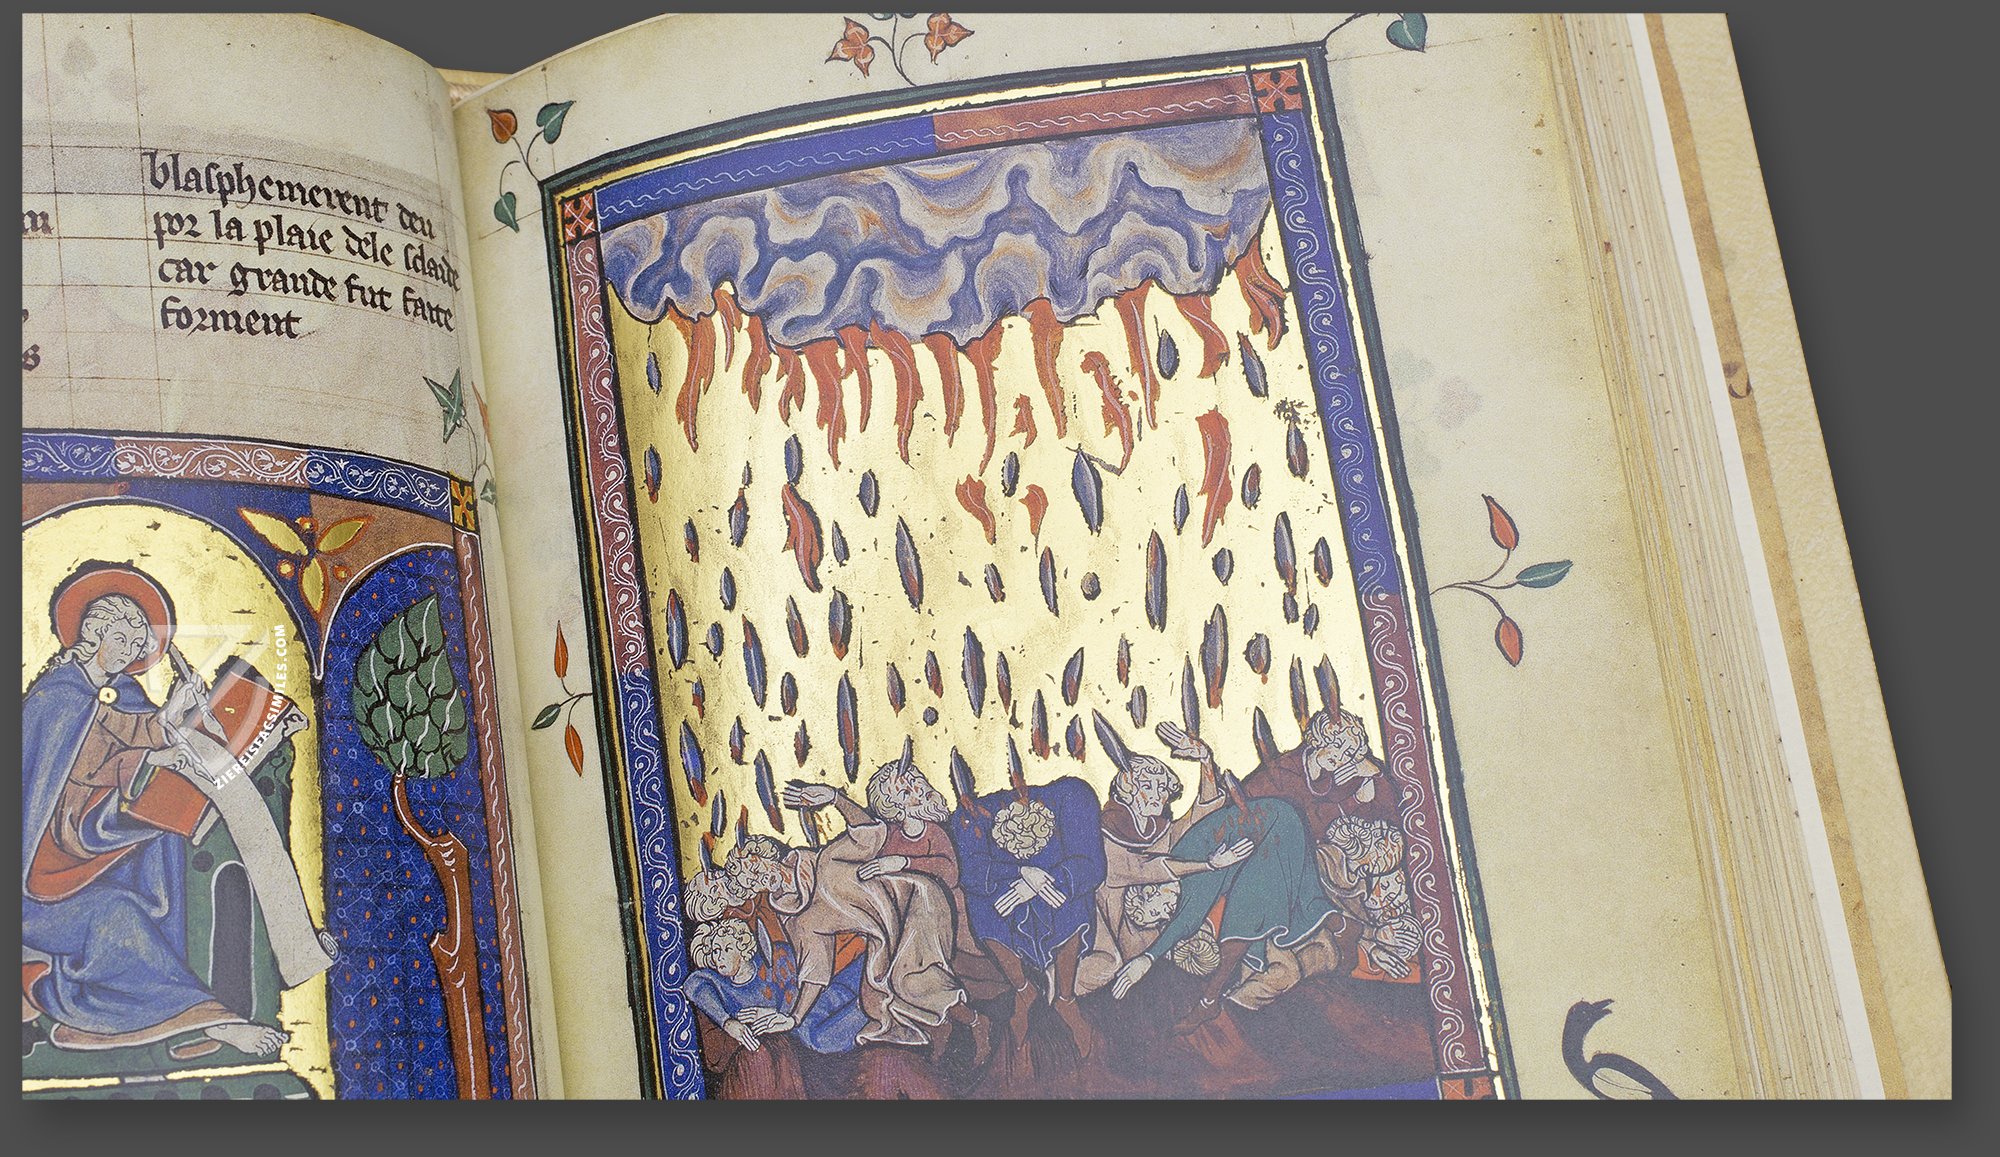 blasphemerent deu
por la plaie dele
car grande fut faite
forment
ZIEREISFACSIMILES.COM